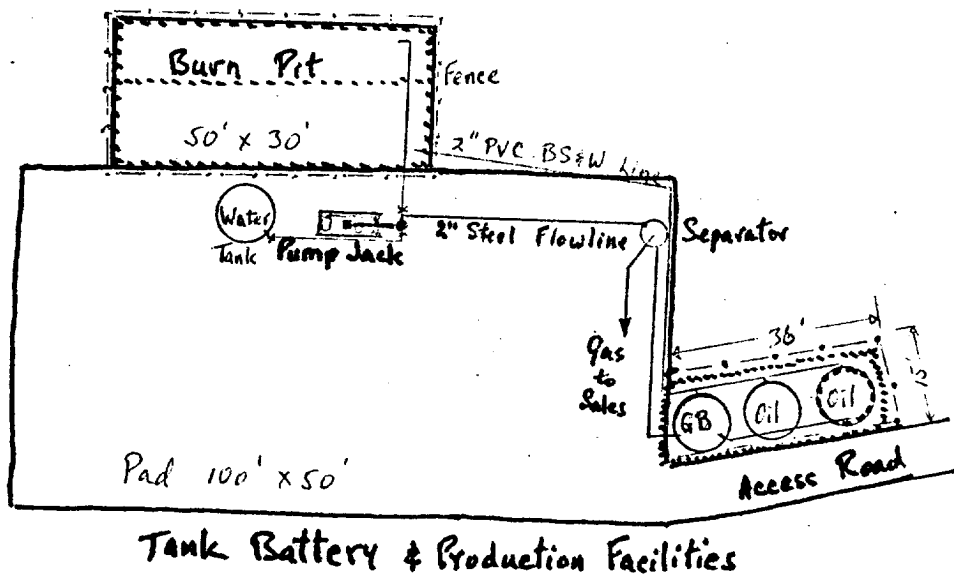 Burn Pit
Fence
50' x 30'
2" PVC BS&W Line
Water
Tank
Pump Jack
2" Steel Flowline
Separator
Gas
to
Sales
36'
15'
GB
Oil
Oil
Access Road
Pad 100' x 50'
Tank Battery & Production Facilities